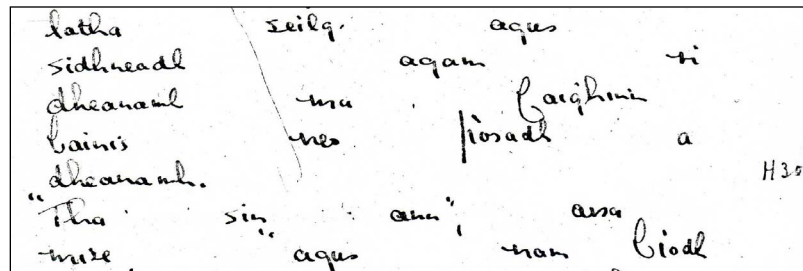 latha seilg. agus
sidhneadh agam ri
dheanamh mu faighinn
bainis neo pòsadh a
dheanamh. H30
"Tha sin ann", arsa
mise "agus nam biodh